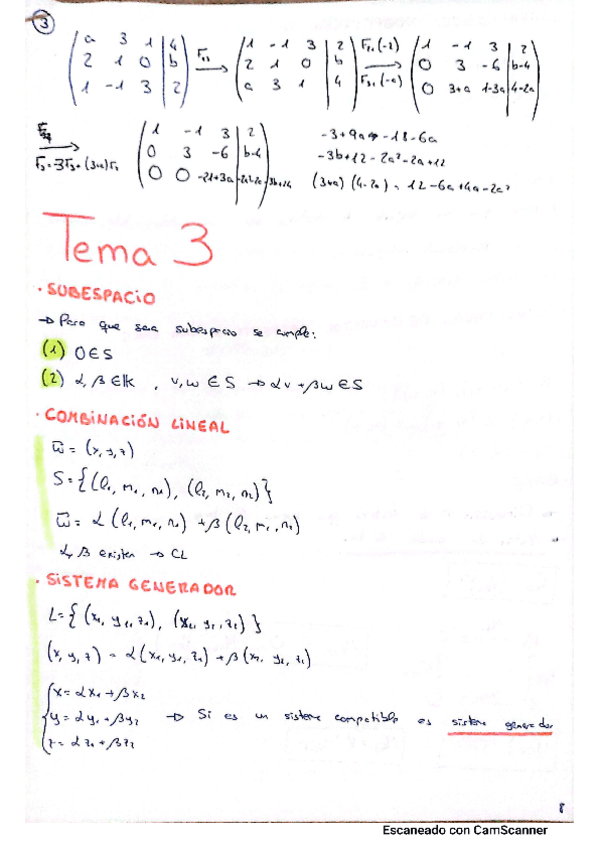 3
( a 3 1 | 4 ) F13 ( 1 -1 3 | 2 ) F21(-2) ( 1 -1 3 | 2 )
( 2 1 0 | b ) → ( 2 1 0 | b ) → ( 0 3 -6 | b-4 )
( 1 -1 3 | 2 ) ( a 3 1 | 4 ) F31(-a) ( 0 3+a 1-3a | 4-2a )
→ ( 1 -1 3 | 2 ) -3+9a -18-6a
( 0 3 -6 | b-4 ) -3b+12-2a²-2a+12
( 0 0 -21+3a (3+a)(4-2a) = 12-6a+4a-2a²
Tema 3
· SUBESPACIO
→ Para que sea subespacio se cumple:
(1) 0∈S
(2) α, β ∈ lk , v, w ∈ S → αv + βw ∈ S
· COMBINACIÓN LINEAL
ū = (x, y, z)
S = { (l1, m1, n1), (l2, m2, n2) }
ū = α (l1, m1, n1) + β (l2, m2, n2)
α, β existen → CL
· SISTEMA GENERADOR
L = { (x1, y1, z1), (x2, y2, z2) }
(x, y, z) = α(x1, y1, z1) + β(x2, y2, z2)
x = αx1 + βx2
y = αy1 + βy2 → Si es un sistema compatible es sistema generador
z = αz1 + βz2
8
Escaneado con CamScanner